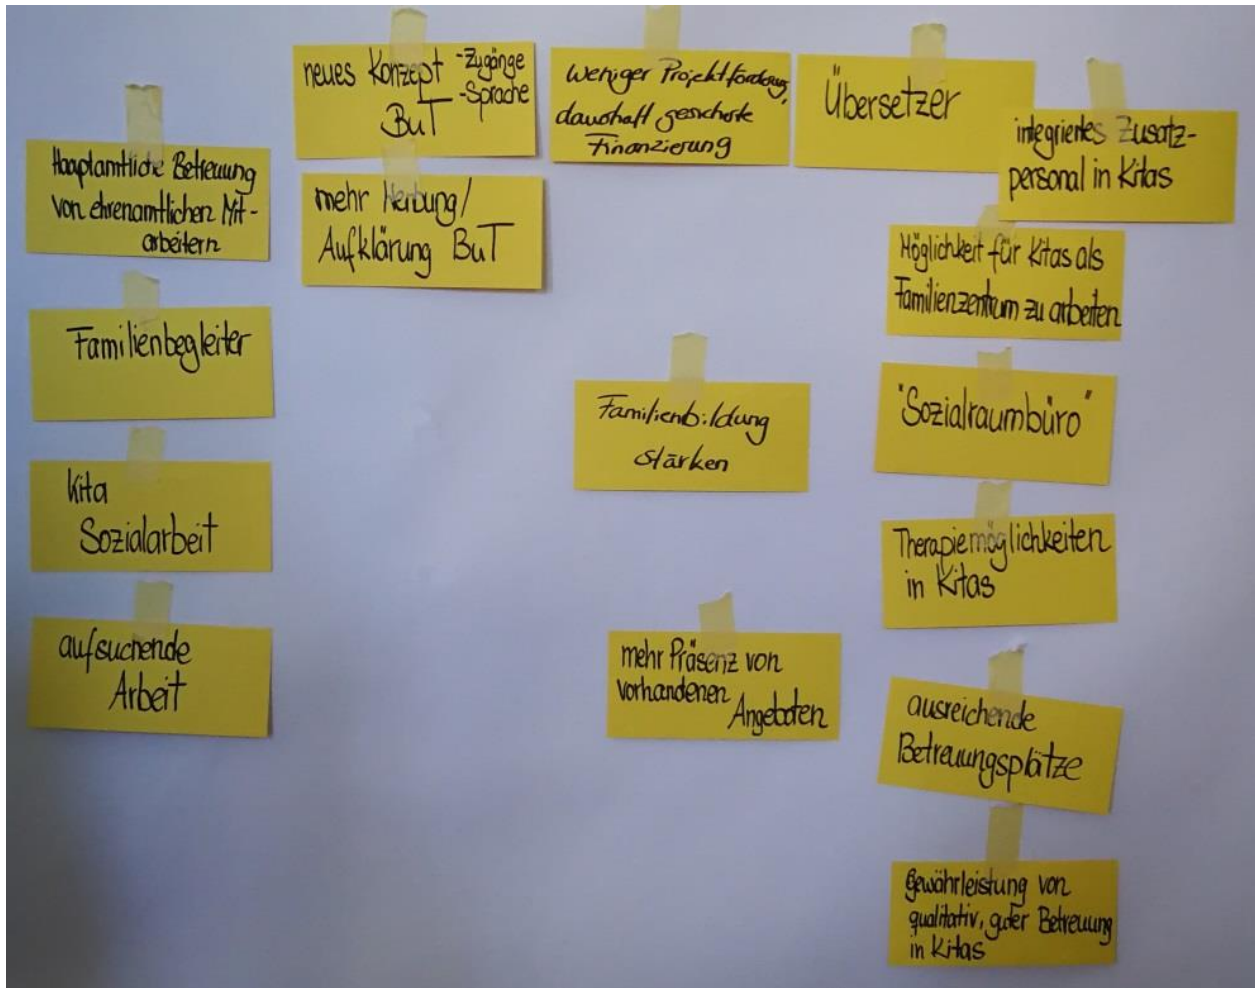 Hauptamtliche Betreuung
von ehrenamtlichen Mit-
arbeitern
Familienbegleiter
Kita
Sozialarbeit
aufsuchende
Arbeit
neues Konzept -Zugänge
BuT -Sprache
mehr Werbung/
Aufklärung BuT
weniger Projektförderung,
dauerhaft gesicherte
Finanzierung
Familienbildung
stärken
mehr Präsenz von
vorhandenen
Angeboten
Übersetzer
integriertes Zusatz-
personal in Kitas
Möglichkeit für Kitas als
Familienzentrum zu arbeiten
"Sozialraumbüro"
Therapiemöglichkeiten
in Kitas
ausreichende
Betreuungsplätze
Gewährleistung von
qualitativ, guter Betreuung
in Kitas